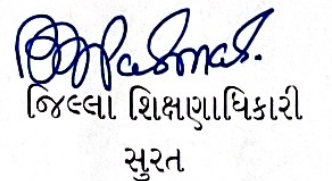 જિલ્લા શિક્ષણાધિકારી
સુરત